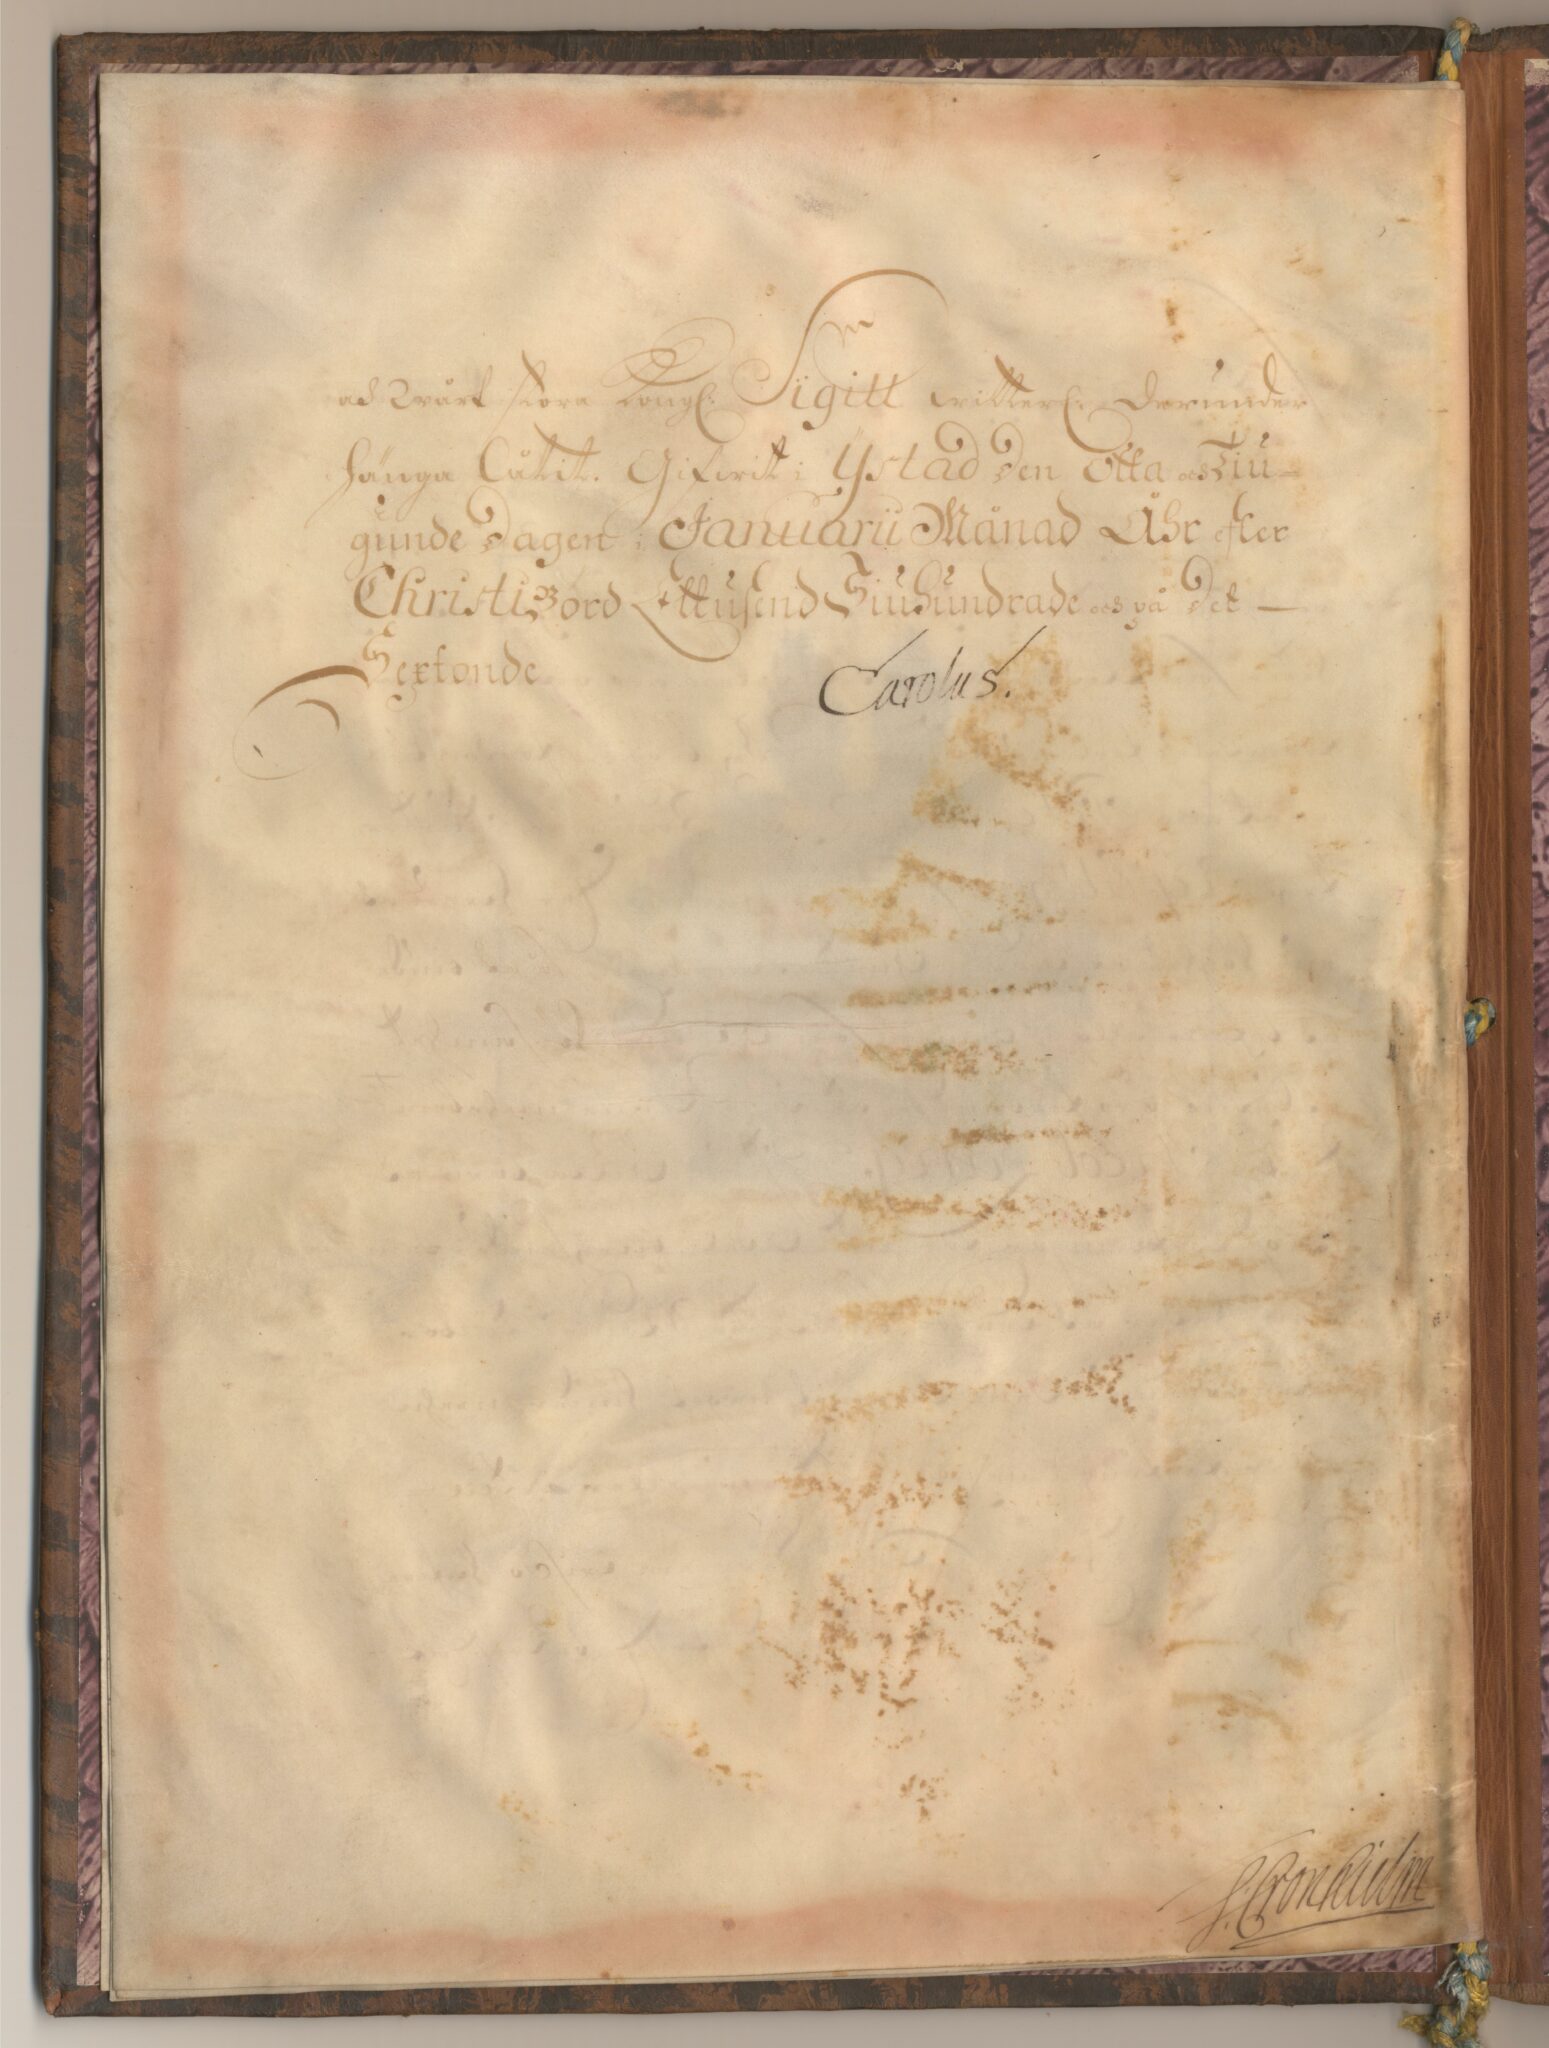 ad Wårt stora Kongl: Sigill witterl: derunder
hänga låtit. Gifwit i Ystad den Otta och Tiu-
gunde Dagen i Januarii Månad Åhr efter
Christi Börd Ettusend Siuhundrade och på det
Sextonde
Carolus.
S. Cronhielm